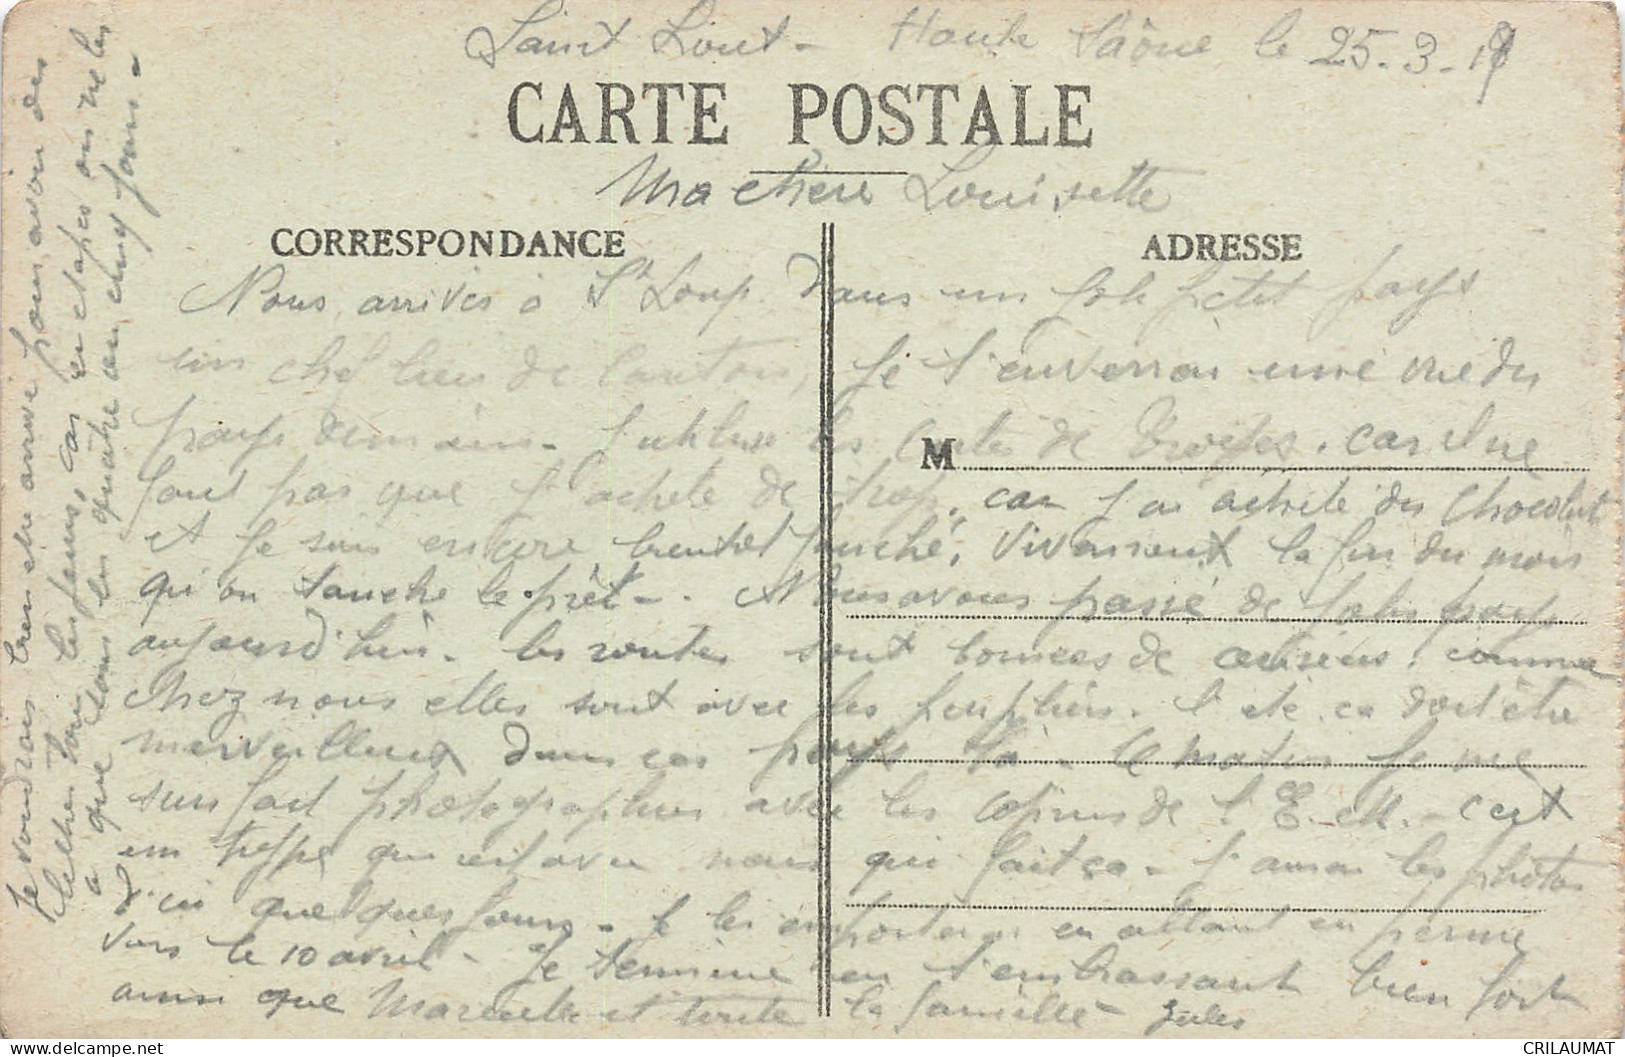 Saint Lout - Haute Saône le 25-3-19
CARTE POSTALE
Ma chère Louisette
CORRESPONDANCE
ADRESSE
Nous arrivés à St Loup dans un joli petit pays
un chef lieu de Canton, Je t'enverrai une vue du
pays demain - J'utilise les cartes de Troyes. car il ne
M
faut pas que j'achete de trop. car j'ai acheté du chocolat
et je suis encore bientot fauché. Vivement la fin du mois
qu'on touche le prêt - . Nous avons passé de jolis pays
aujourd'hui - les routes sont bornées de cerisiers. comme
chez nous elles sont avec les peupliers. l'été ca doit être
merveilleux dans ces pays là - ce matin je me
suis fait photographier avec les copains de l'E. - c'est
un type qui est avec nous qui fait ça - J'aurai les photos
d'ici quelques jours - Je les emporterai en allant en perme
vers le 10 avril - Je termine en t'embrassant bien fort
ainsi que Marcelle et toute la famille - Jules
Je voudrais bien etre arrivé pour avoir des
lettres tous les jours, car en etapes on ne les
a que tous les quatre ou cinq jours -
CRILAUMAT